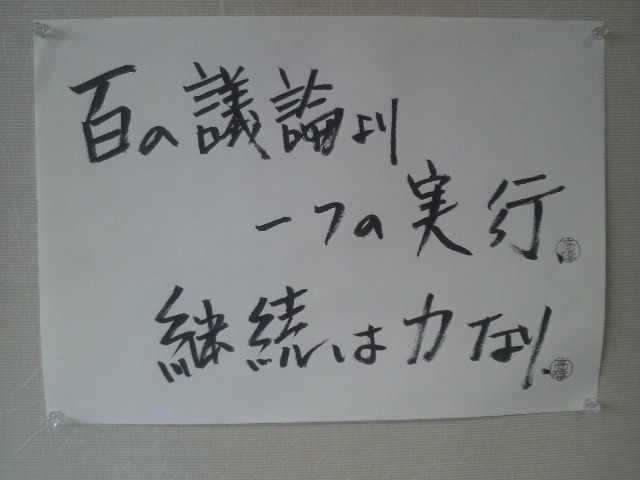 百の議論より
一つの実行
継続は力なり